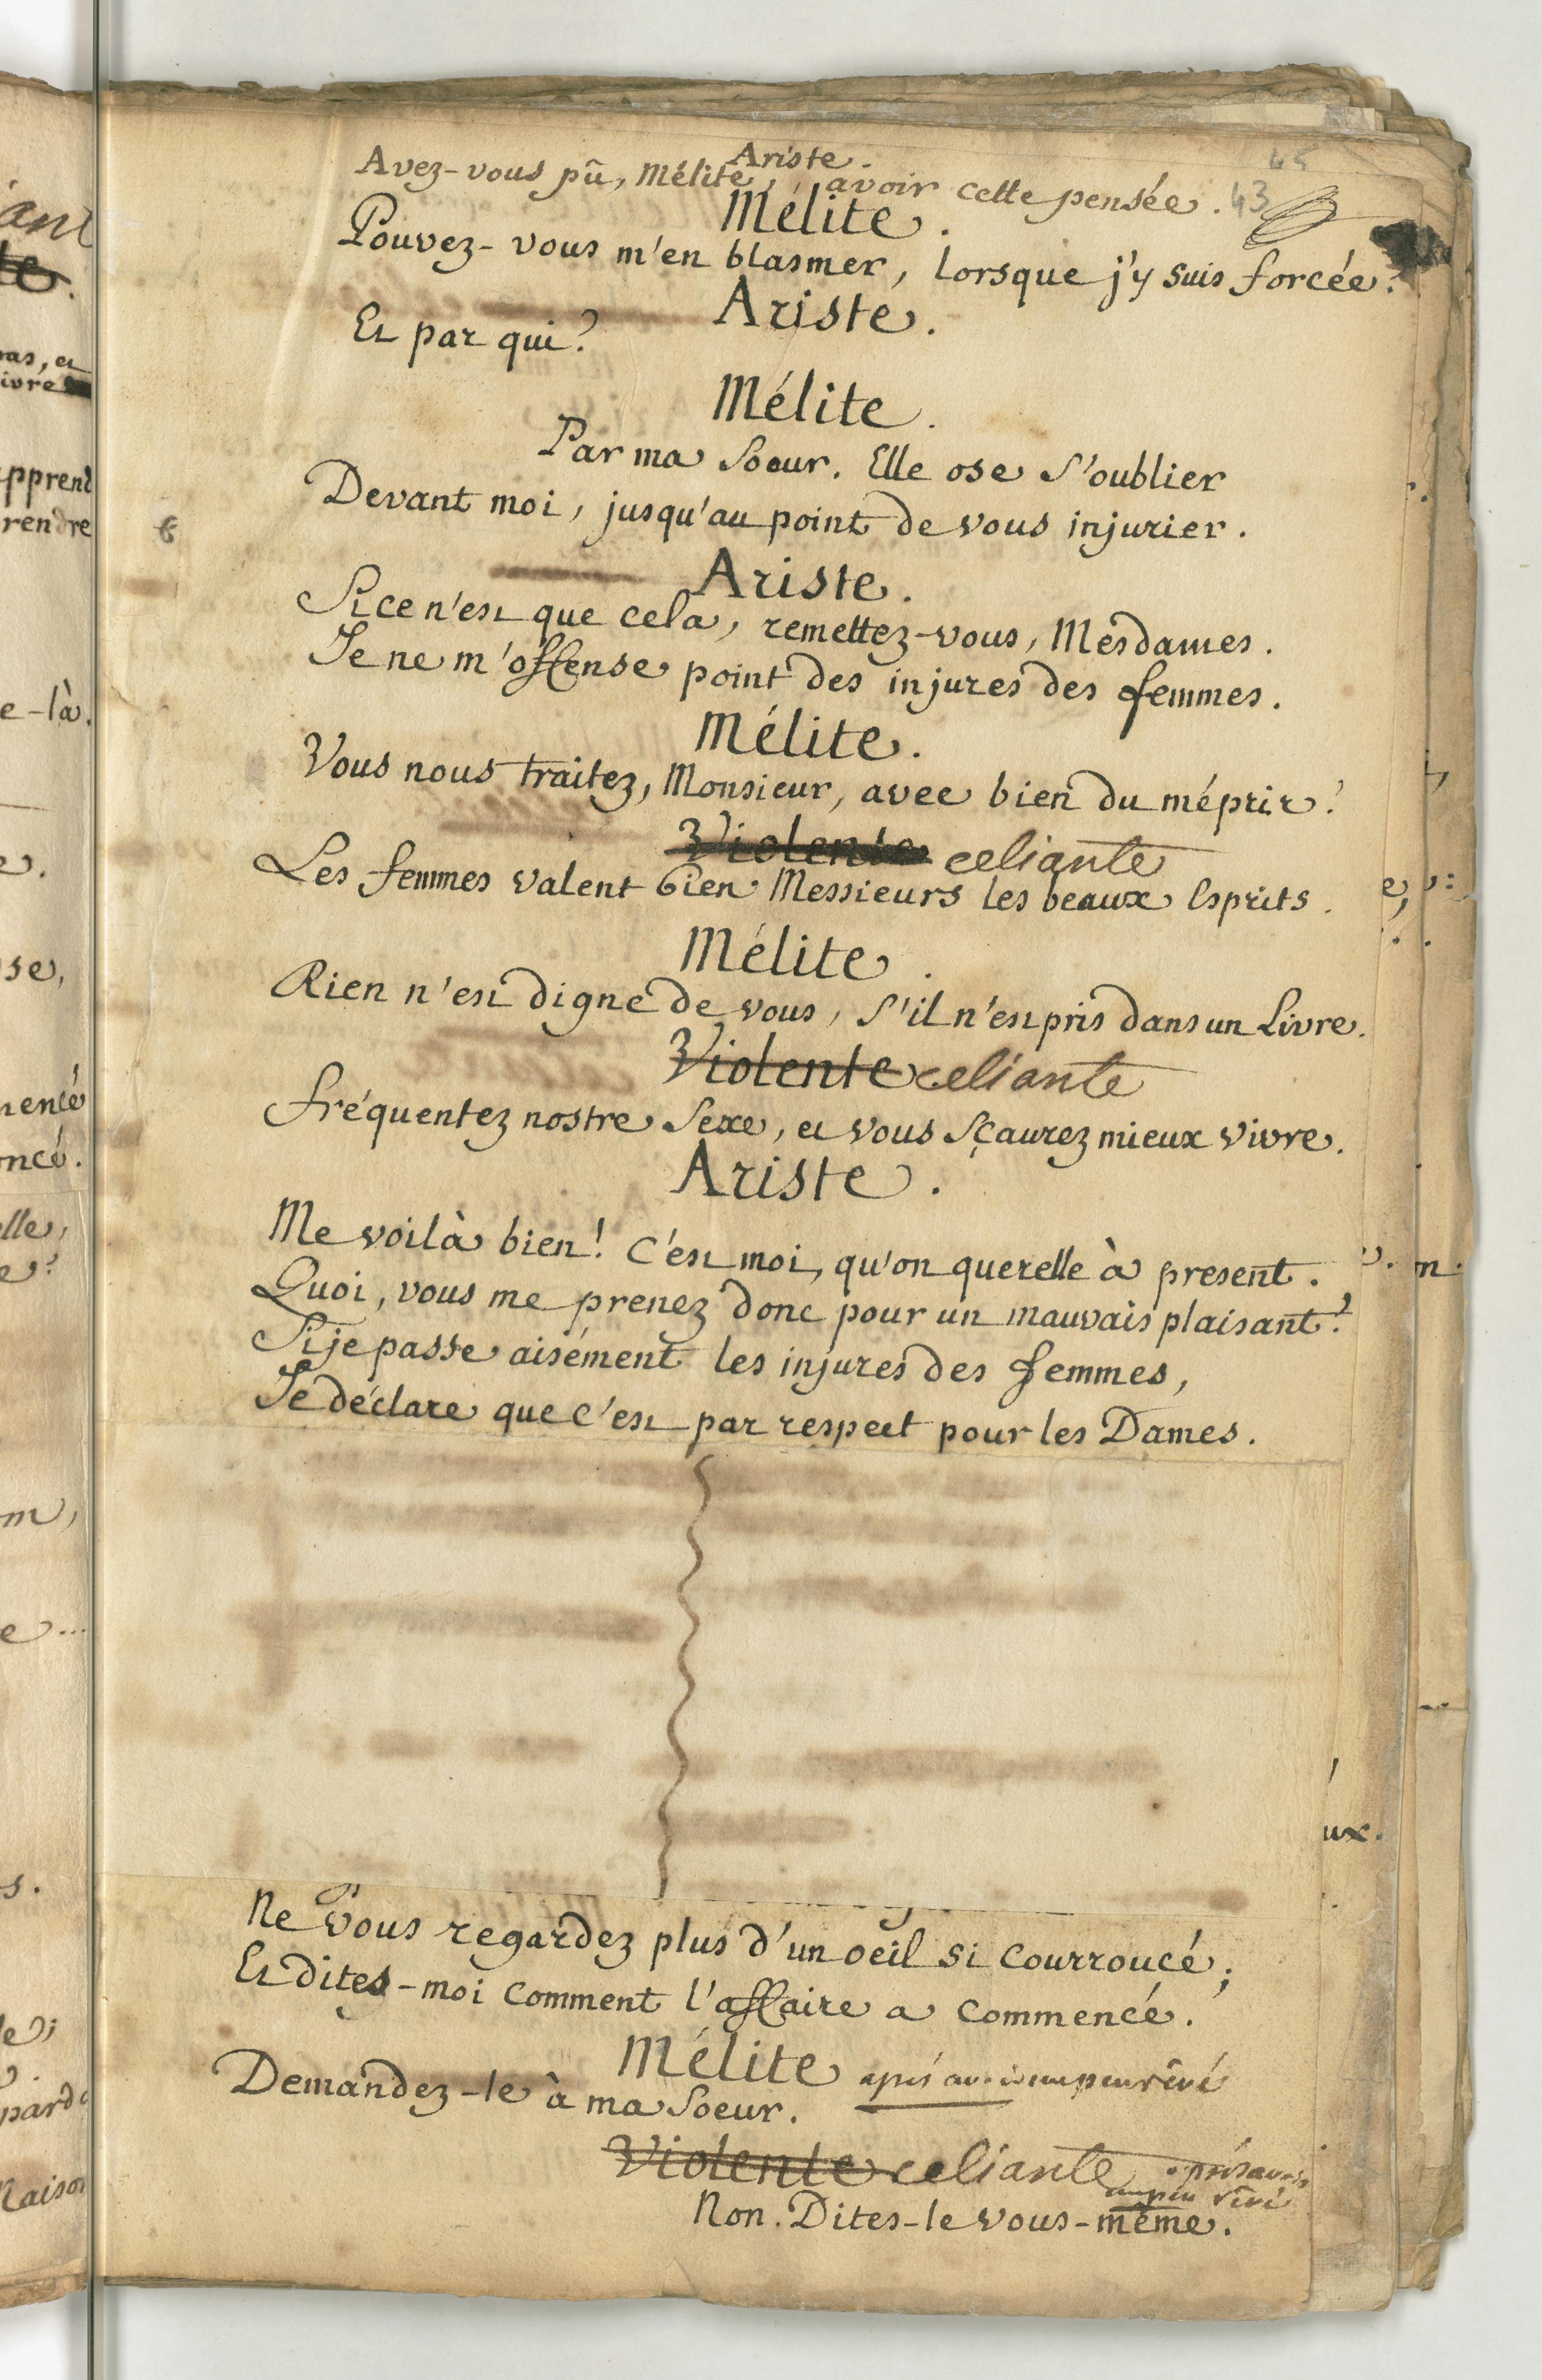 Ariste.
Avez-vous pû, Mélite, avoir cette pensée. 43 45
Mélite.
Pouvez-vous m'en blasmer, lorsque j'y suis forcée?
Ariste.
Et par qui?
Mélite.
Par ma Soeur. Elle ose s'oublier
Devant moi, jusqu'au point de vous injurier.
Ariste.
Si ce n'est que cela, remettez-vous, Mesdames.
Je ne m'offense point des injures des femmes.
Mélite.
Vous nous traitez, Monsieur, avec bien du mépris!
Violente celiante
Les femmes valent bien Messieurs les beaux Esprits.
Mélite.
Rien n'est digne de vous, s'il n'est pris dans un Livre.
Violente celiante
Fréquentez nostre Sexe, et vous sçaurez mieux vivre.
Ariste.
Me voilà bien! C'est moi, qu'on querelle à present.
Quoi, vous me prenez donc pour un mauvais plaisant?
Si je passe aisément les injures des femmes,
Je déclare que c'est par respect pour les Dames.
Ne vous regardez plus d'un oeil si courroucé;
Et dites-moi comment l'affaire a commencé.
Mélite après avoir un peu rêvé
Demandez-le à ma Soeur.
Violente celiante après avoir
un peu rêvé
Non. Dites-le vous-même.